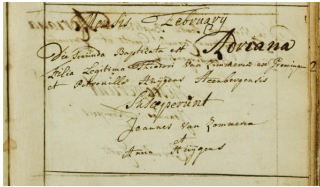 Mensis February
Die secunda Baptizata est Adriana
filia Legitima Theodori Van Zommeren ex
et Petronilla Huijgens Heenbergensis
Susceperunt
Joannes Van Zommeren
et
Anna Huijgens